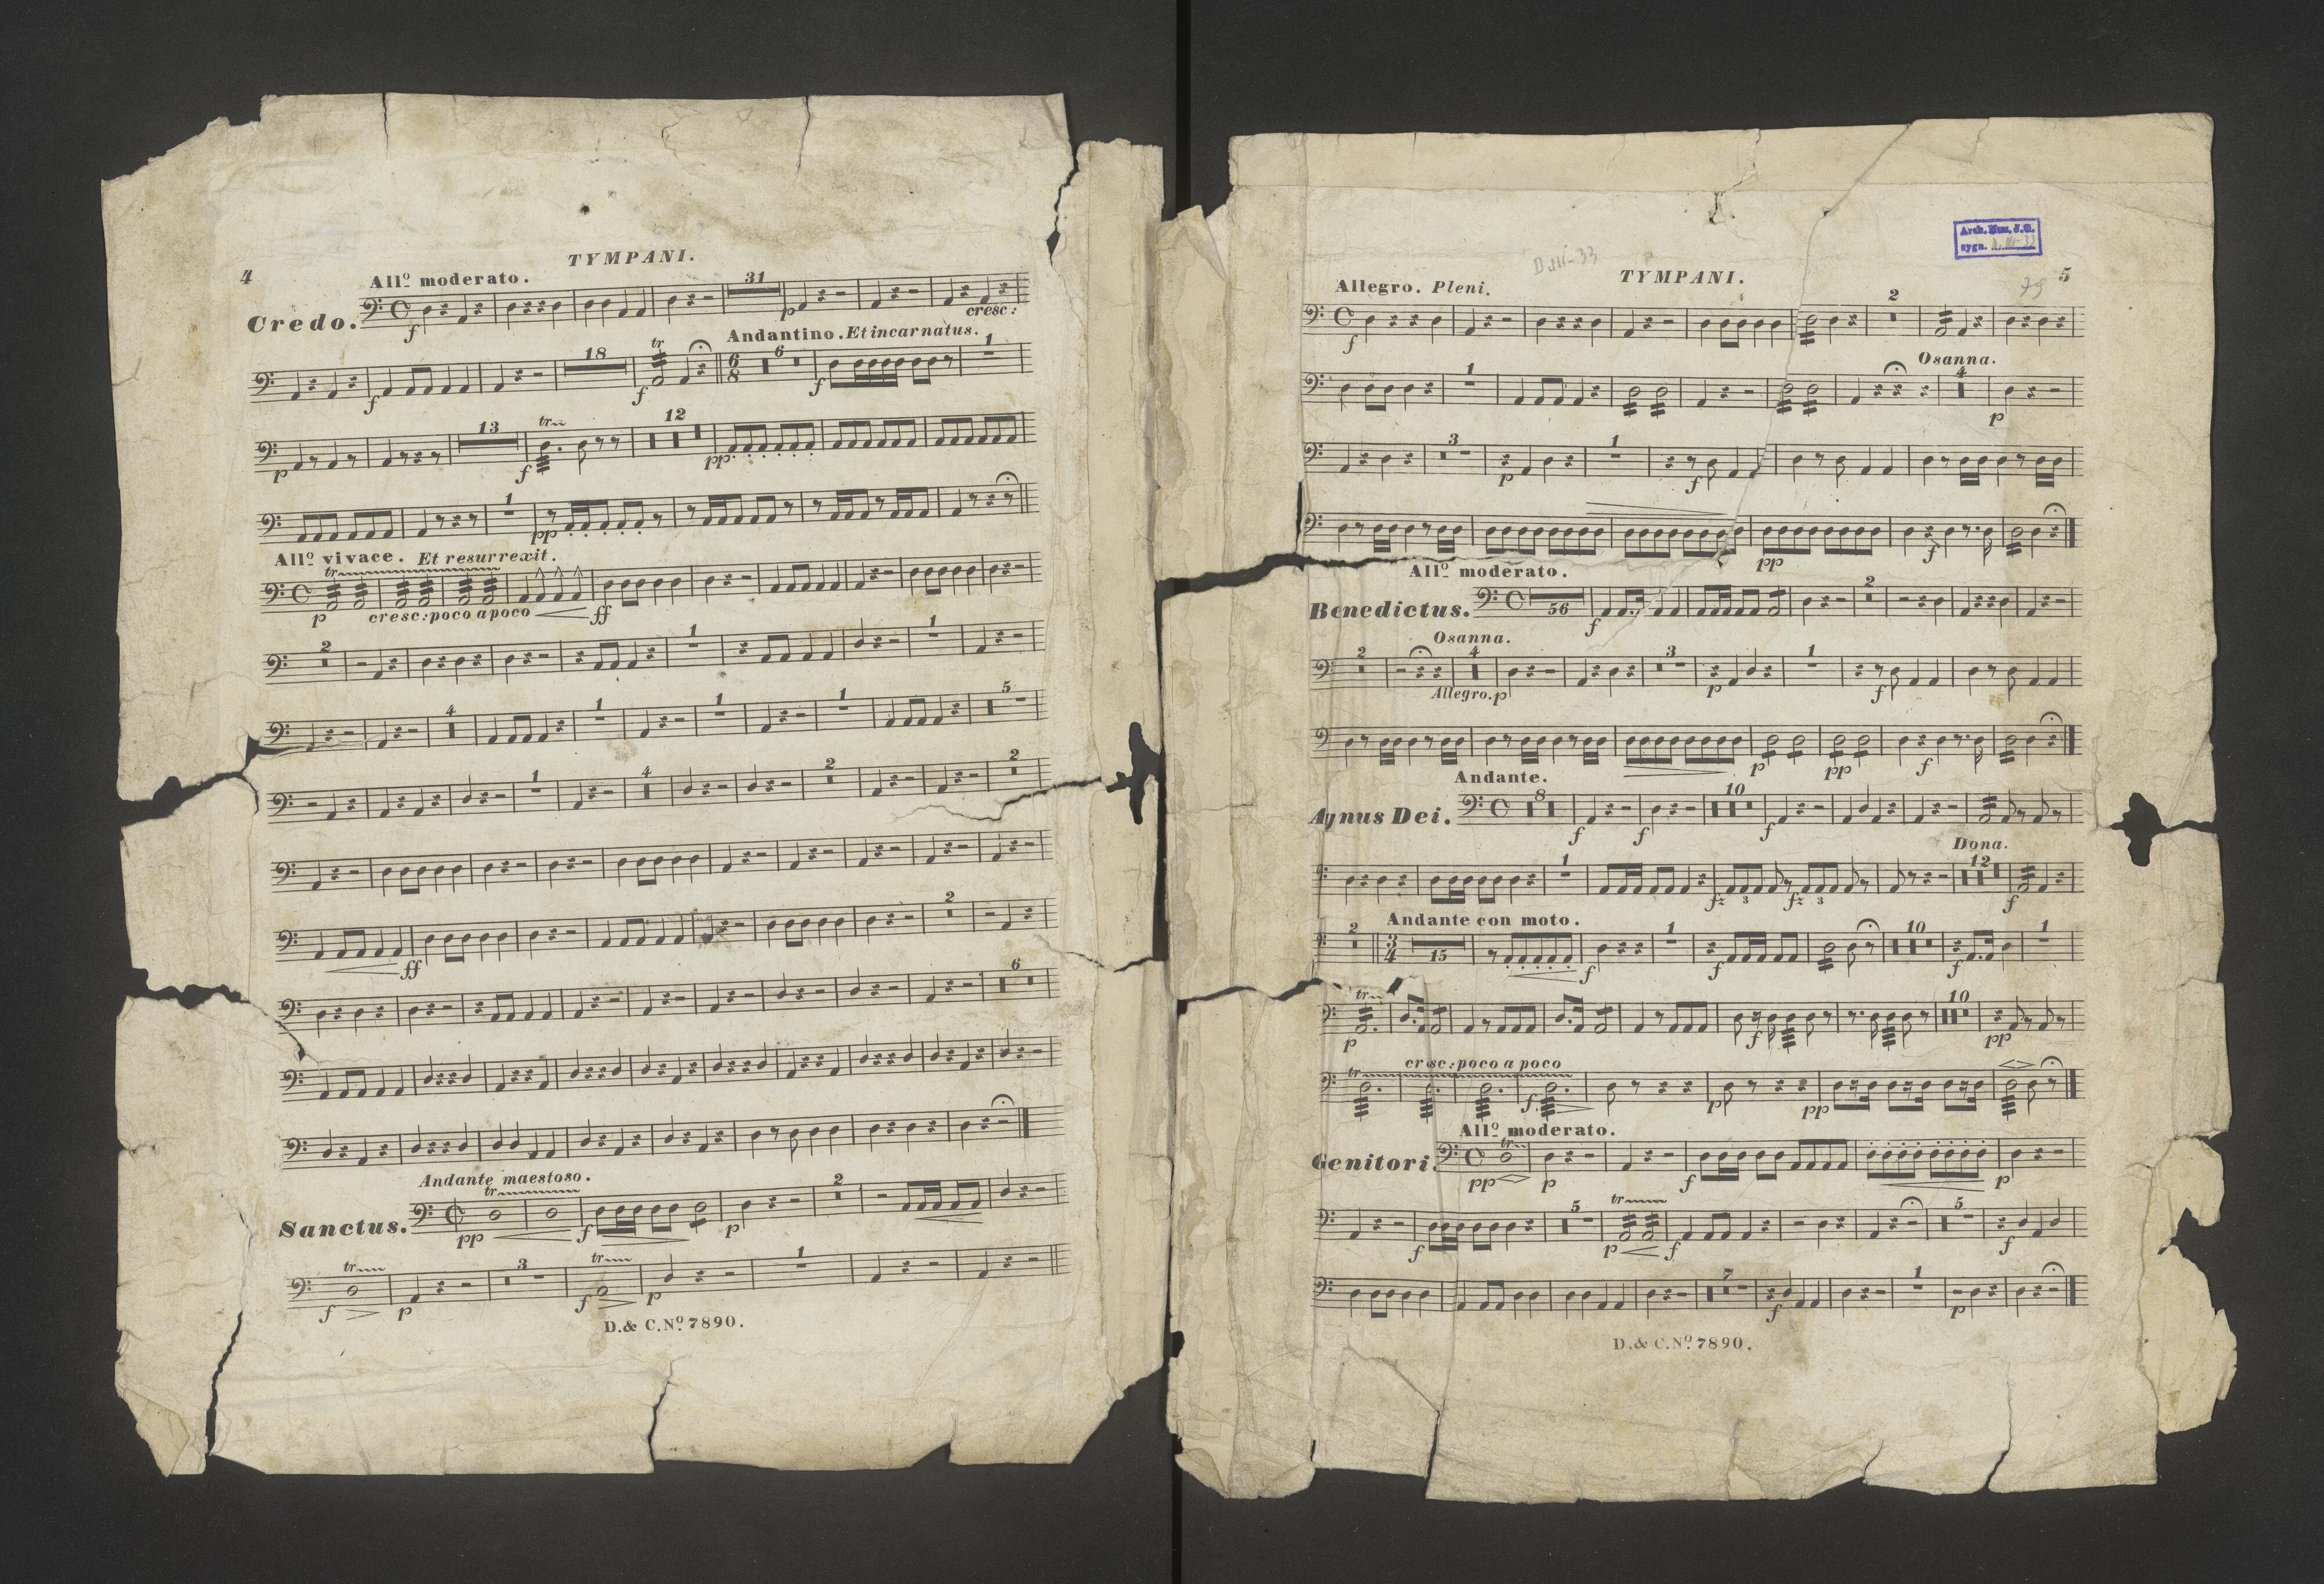 4
TYMPANI.
All⁰ moderato.
Credo.
31
f
p
cresc:
Andantino. Et incarnatus.
18
tr
6
8
6
1
f
f
f
13
tr
12
p
f
pp
1
pp
All⁰ vivace. Et resurrexit.
tr
p
cresc: poco a poco
ff
2
1
1
4
1
1
1
5
1
4
2
2
ff
2
6
Andante maestoso.
Sanctus.
tr
2
pp
f
p
tr
3
tr
1
f
p
f
p
D. & C. N⁰ 7890.
D dIII-33
Arch. Muz. J.G.
sygn.
TYMPANI.
5
Allegro. Pleni.
2
f
Osanna.
1
4
p
3
1
p
f
pp
f
All⁰ moderato.
Benedictus.
56
2
f
Osanna.
2
4
3
1
Allegro. p
p
f
p
pp
f
Andante.
Agnus Dei.
8
10
f
f
f
Dona.
1
12
fz
3
fz
3
f
Andante con moto.
2
3
4
15
1
10
1
f
f
f
tr
10
p
f
pp
cresc: poco a poco
tr
f
p
pp
All⁰ moderato.
Genitori.
tr
pp
p
f
p
5
tr
5
f
p
f
f
7
1
f
p
D. & C. N⁰ 7890.